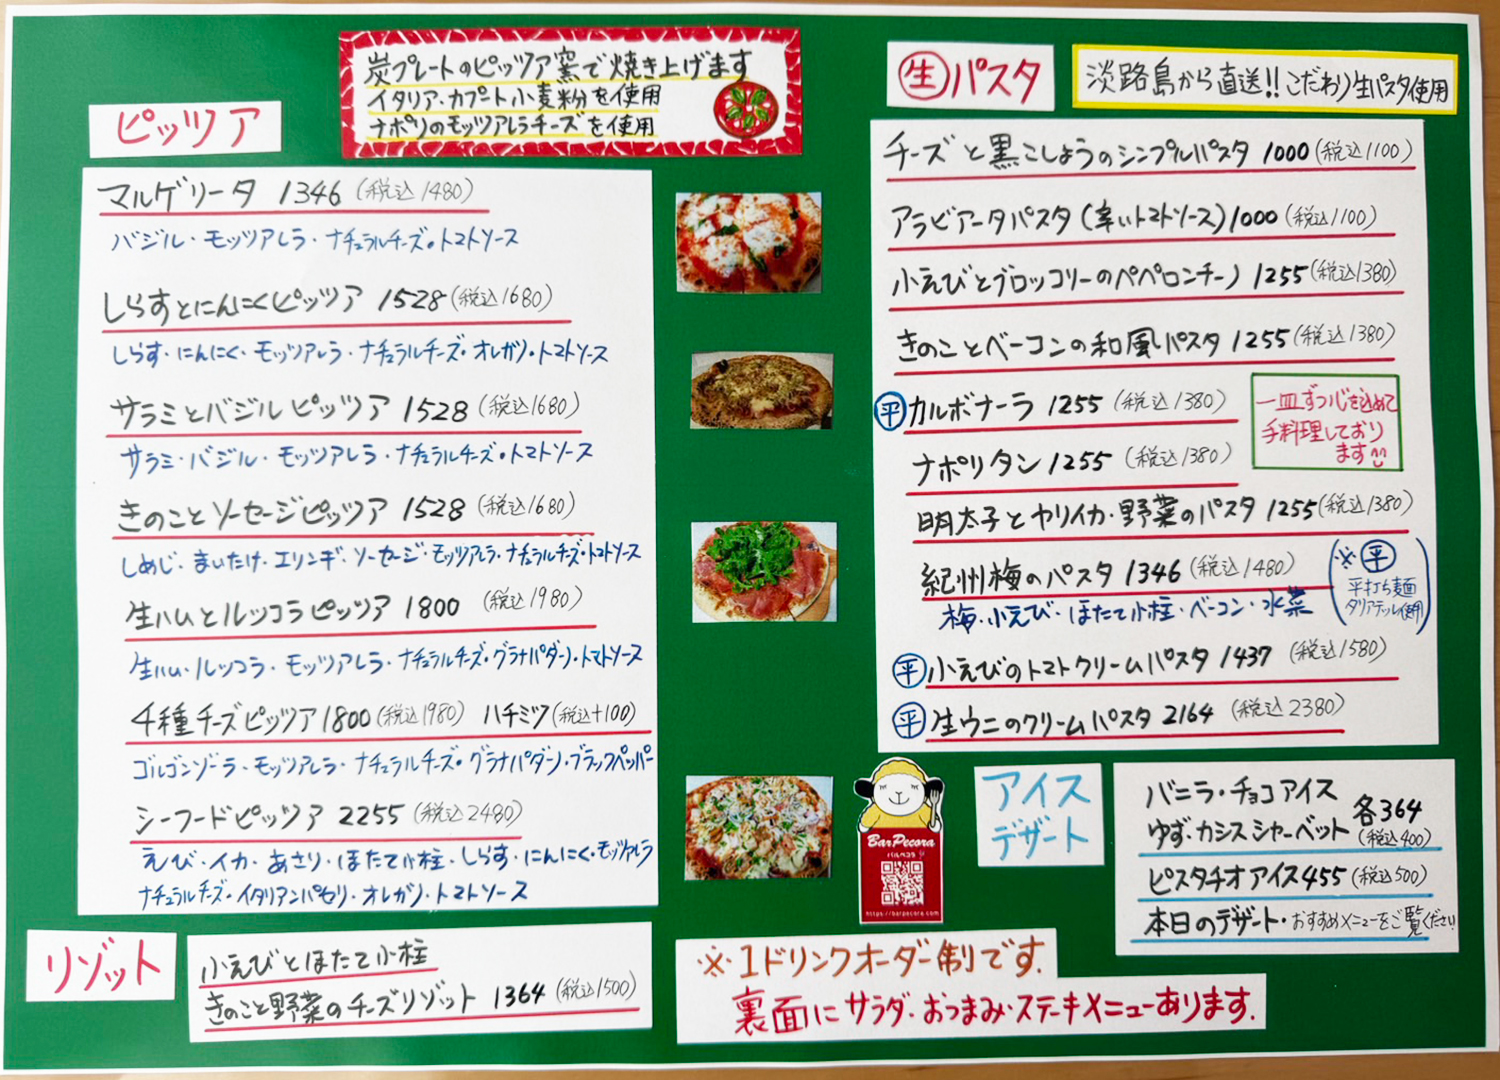 ピッツァ
炭プレートのピッツァ窯で焼き上げます
イタリア・カプート小麦粉を使用
ナポリのモッツアレラチーズを使用
マルゲリータ 1346 (税込1480)
バジル・モッツアレラ・ナチュラルチーズ・トマトソース
しらすとにんにくピッツァ 1528 (税込1680)
しらす・にんにく・モッツアレラ・ナチュラルチーズ・オレガノ・トマトソース
サラミとバジルピッツァ 1528 (税込1680)
サラミ・バジル・モッツアレラ・ナチュラルチーズ・トマトソース
きのことソーセージピッツァ 1528 (税込1680)
しめじ・まいたけ・エリンギ・ソーセージ・モッツアレラ・ナチュラルチーズ・トマトソース
生ハムとルッコラピッツァ 1800 (税込1980)
生ハム・ルッコラ・モッツアレラ・ナチュラルチーズ・グラナパダーノ・トマトソース
4種チーズピッツァ 1800 (税込1980) ハチミツ(税込+100)
ゴルゴンゾーラ・モッツアレラ・ナチュラルチーズ・グラナパダーノ・ブラックペッパー
シーフードピッツァ 2255 (税込2480)
えび・イカ・あさり・ほたて小柱・しらす・にんにく・モッツアレラ
ナチュラルチーズ・イタリアンパセリ・オレガノ・トマトソース
リゾット
小えびとほたて小柱
きのこと野菜のチーズリゾット 1364 (税込1500)
生パスタ
淡路島から直送!!こだわり生パスタ使用
チーズと黒こしょうのシンプルパスタ 1000 (税込1100)
アラビアータパスタ(辛いトマトソース) 1000 (税込1100)
小えびとブロッコリーのペペロンチーノ 1255 (税込1380)
きのことベーコンの和風パスタ 1255 (税込1380)
平 カルボナーラ 1255 (税込1380)
ナポリタン 1255 (税込1380)
一皿ずつ心を込めて
手料理しており
ます
明太子とヤリイカ・野菜のパスタ 1255 (税込1380)
紀州梅のパスタ 1346 (税込1480)
梅・小えび・ほたて小柱・ベーコン・水菜
(※平
平打ち麺
タリアテッレ使用)
平 小えびのトマトクリームパスタ 1437 (税込1580)
平 生ウニのクリームパスタ 2164 (税込2380)
BarPecora
バルペコラ
https://barpecora.com
アイス
デザート
バニラ・チョコアイス
ゆず・カシスシャーベット 各364 (税込400)
ピスタチオアイス 455 (税込500)
本日のデザート・おすすめメニューをご覧ください
※1ドリンクオーダー制です.
裏面にサラダ・おつまみ・ステーキメニューあります.